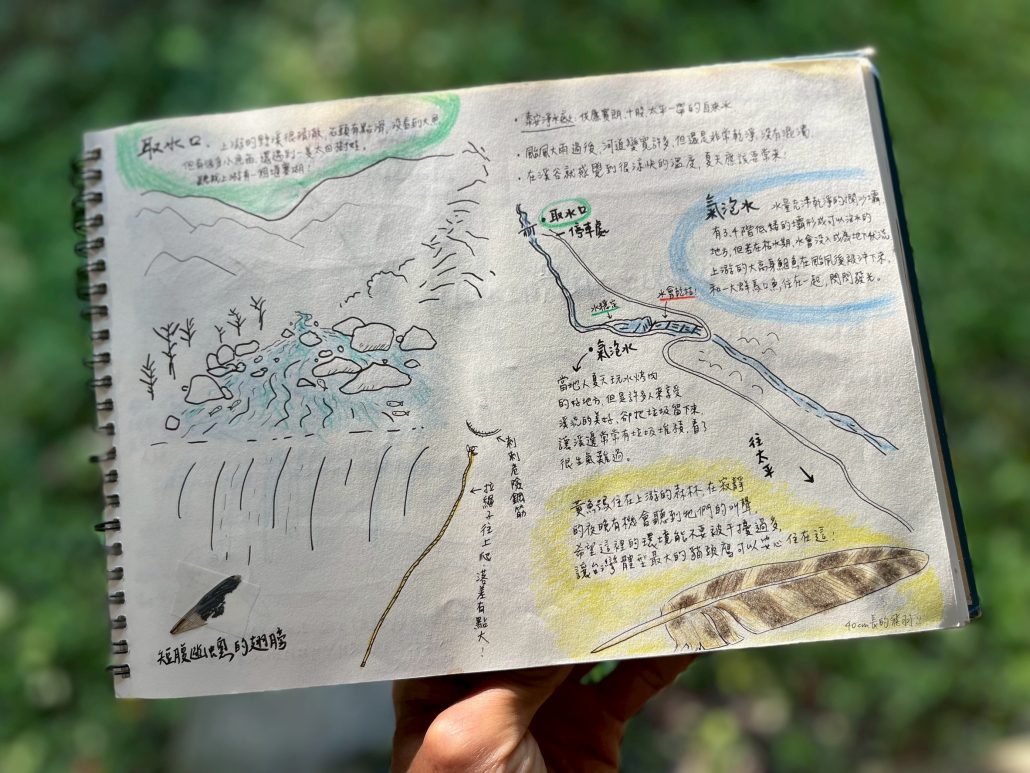 取水口、上游的野溪很清澈,石頭有點滑,沒看到大魚
但有很多小魚苗,還遇到一隻大田鱉!
聽說上游有一個堰塞湖!
刺刺危險鋼筋
拉繩子往上爬 落差有點大!
短腹幽蟌的翅膀
• 泰安淨水廠:供應寶朗、十股、太平一帶的自來水
• 颱風大雨過後,河道變寬許多,但還是非常乾淨,沒有混濁
• 在溪谷就感覺到很涼快的溫度,夏天應該要常來!
氣泡水 水量充沛乾淨的攔沙壩,
有3、4階低矮的壩形成可以泡水的
地方,但若在枯水期,水會沒入成為地下伏流
上游的大高身鯝魚在颱風後被沖下來,
和一大群馬口魚住在一起,閃閃發光。
• 取水口
停車處
水穩定
水會乾枯!
• 氣泡水
當地人夏天玩水烤肉
的好地方,但是許多人來享受
溪流的美好,卻把垃圾留下來,
讓溪邊常常有垃圾堆積,看了
很生氣難過。
往太平
黃魚鴞住在上游的森林,在寂靜
的夜晚有機會聽到牠們的叫聲,
希望這裡的環境能不要被干擾過多,
讓台灣體型最大的貓頭鷹可以安心住在這!
40cm長的飛羽!